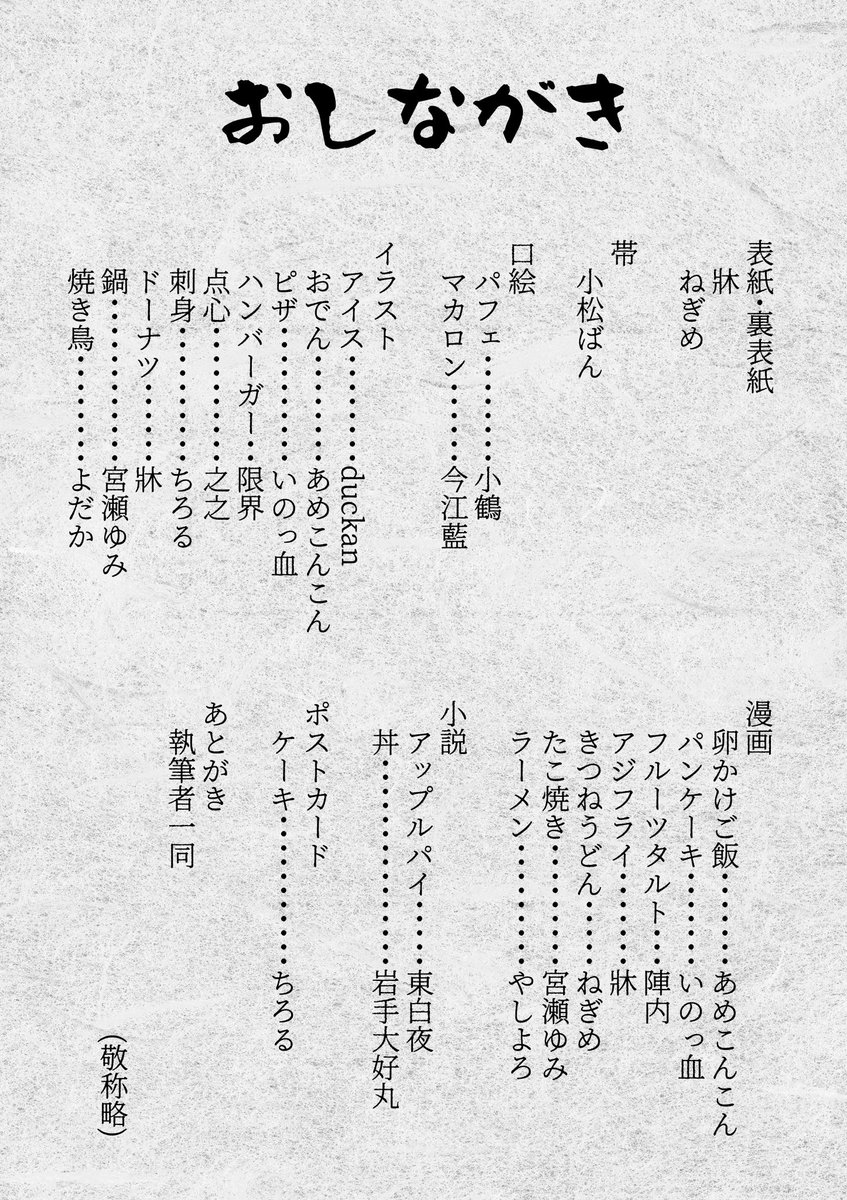 おしながき
表紙・裏表紙
牀
ねぎめ
帯
小松ばん
口絵
パフェ・・・・・・・小鶴
マカロン・・・・・今江藍
イラスト
アイス・・・・・・・duckan
おでん・・・・・・・あめこんこん
ピザ・・・・・・・・・いのっ血
ハンバーガー・・限界
点心・・・・・・・・・之之
刺身・・・・・・・・・ちろる
ドーナツ・・・・・牀
鍋・・・・・・・・・・・宮瀬ゆみ
焼き鳥・・・・・・・よだか
漫画
卵かけご飯・・・・・あめこんこん
パンケーキ・・・・・いのっ血
フルーツタルト・・陣内
アジフライ・・・・・牀
きつねうどん・・・ねぎめ
たこ焼き・・・・・・・宮瀬ゆみ
ラーメン・・・・・・・やしよろ
小説
アップルパイ・・・東白夜
丼・・・・・・・・・・・・・岩手大好丸
ポストカード
ケーキ・・・・・・・・・ちろる
あとがき
執筆者一同
(敬称略)